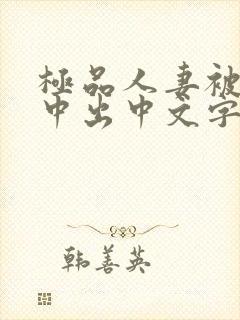 極品人妻被
中出中文字
韩善英